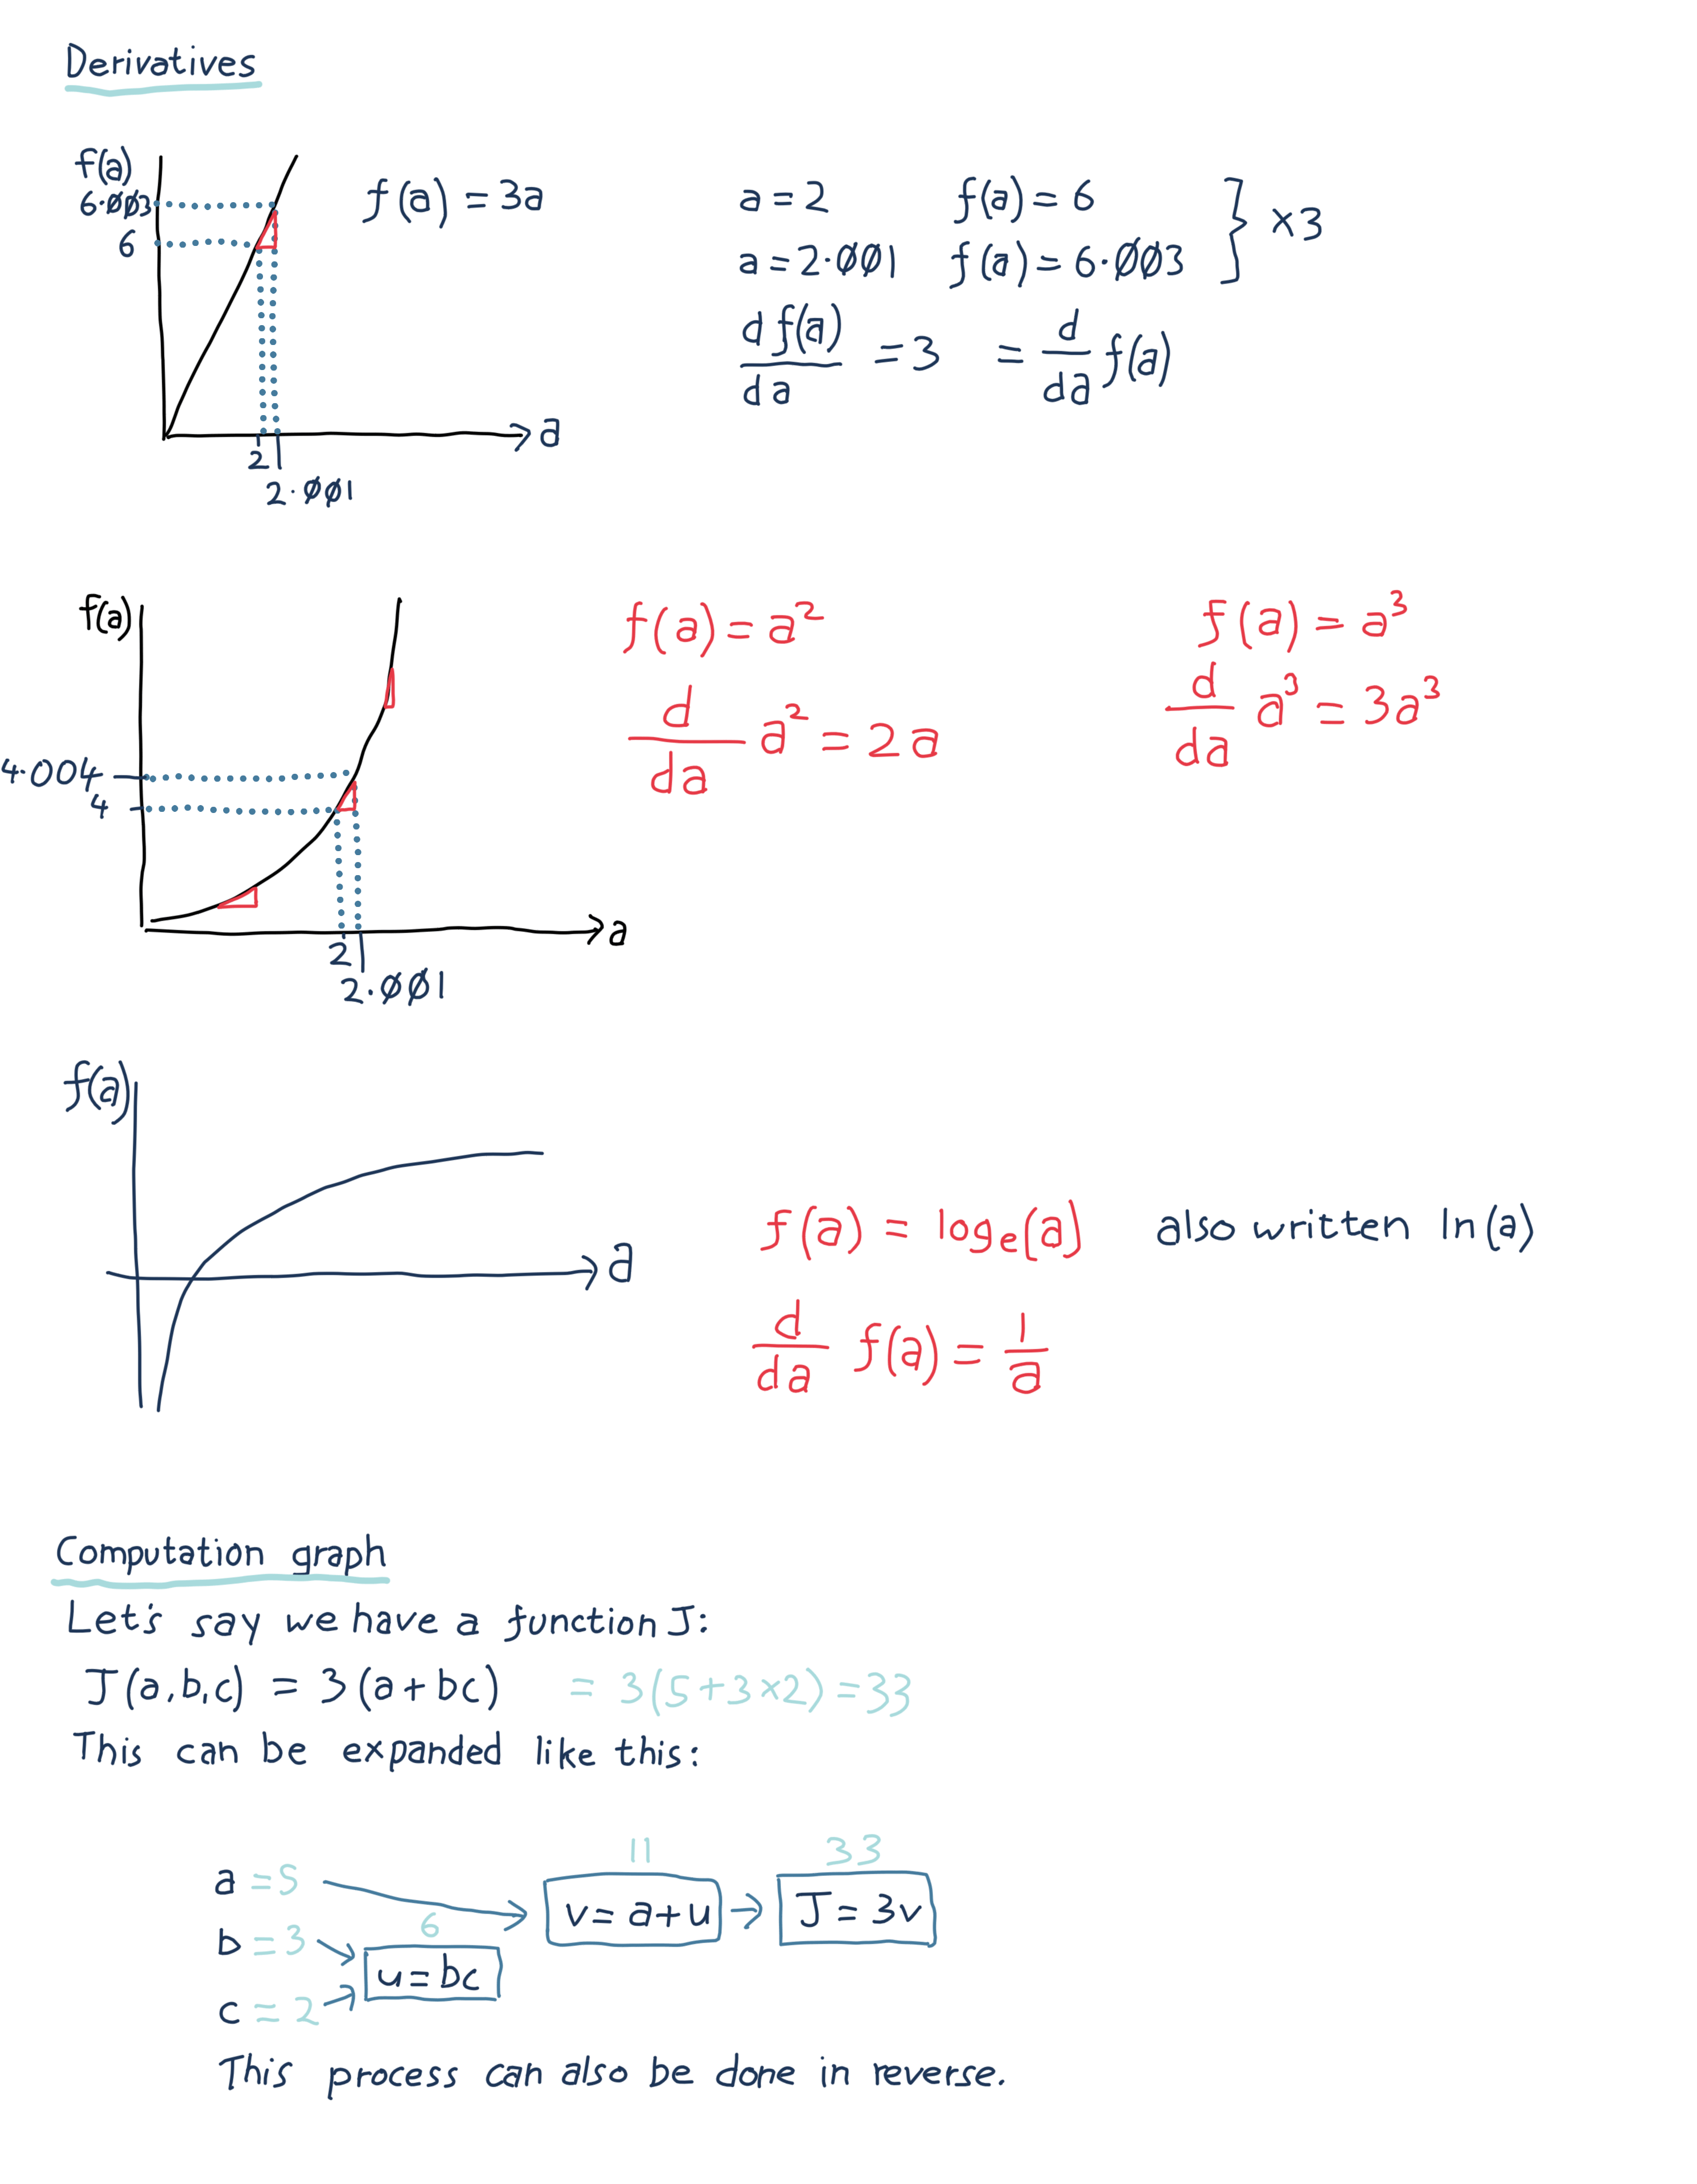 Derivatives
f(a)
6.003
6
2
2.001
a
f(a) = 3a
a = 2 f(a) = 6
a = 2.001 f(a) = 6.003
} ×3
d f(a)/da = 3 = d/da f(a)
f(a)
4.004
4
2
2.001
a
f(a) = a²
d/da a² = 2a
f(a) = a³
d/da a³ = 3a³
f(a)
a
f(a) = logₑ(a) also written ln(a)
d/da f(a) = 1/a
Computation graph
Let's say we have a function J:
J(a,b,c) = 3(a+bc) = 3(5+3×2) = 33
This can be expanded like this:
a = 5
b = 3
c = 2
6
u = bc
11
v = a+u
33
J = 3v
This process can also be done in reverse.